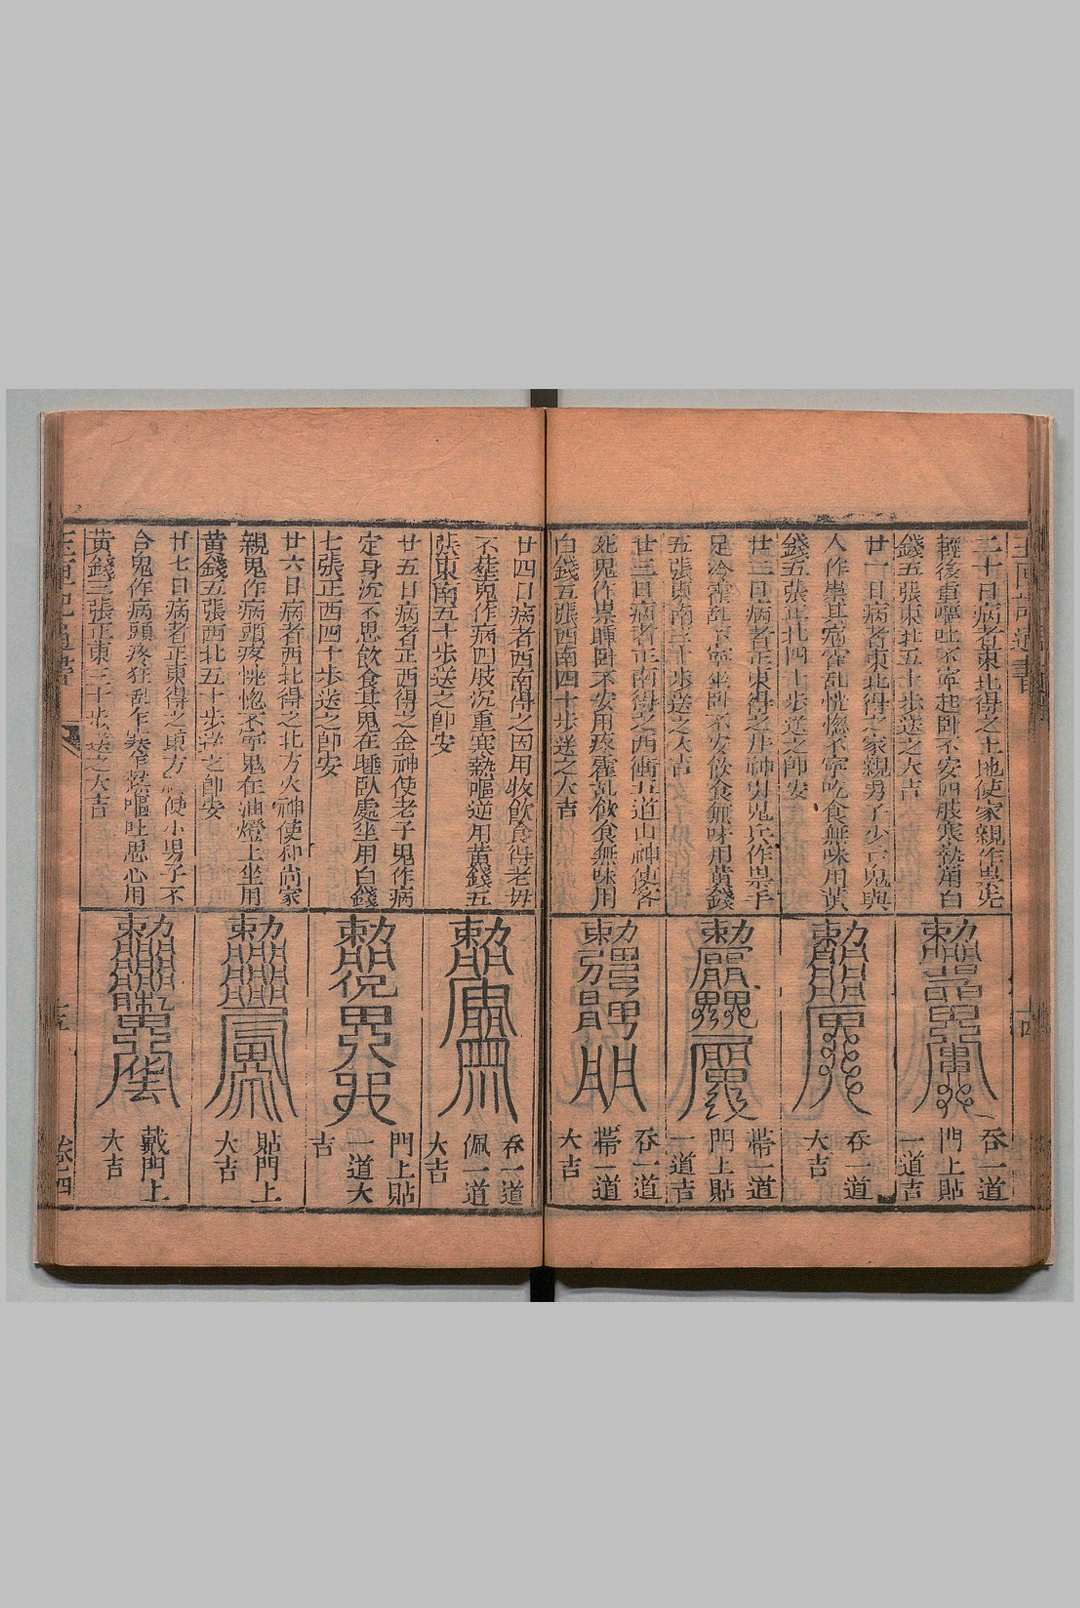 二十日病者東北得之土地使家親作祟先
輕後重嘔吐不寧起卧不安四肢寒熱用白
錢五張東北五十步送之大吉
吞一道
門上貼
一道吉
廿一日病者東北得之家親男子少亡鬼與
人作祟其病霍乱恍惚不寧吃食無味用黃
錢五張正北四十步送之即安
吞一道
大吉
廿二日病者正東得之井神引鬼兵作祟手
足冷霍乱不寧坐卧不安飲食無味用黃錢
五張東南三十步送之大吉
帶一道
門上貼
一道吉
廿三日病者正南得之西衝五道山神使客
死鬼作祟睡卧不安用痰霍乱飲食無味用
白錢五張西南四十步送之大吉
吞一道
帶一道
大吉
廿四日病者西南得之因用收飲食得老姙
不葬鬼作病四肢沉重寒熱嘔逆用黃錢五
張東南五十步送之即安
吞一道
佩一道
大吉
廿五日病者正西得之金神使老子鬼作病
定身沉不思飲食其鬼在睡臥處坐用白錢
七張正西四十步送之即安
門上貼
一道大
吉
廿六日病者西北得之北方火神使和尚家
親鬼作病頭疼恍惚不寧鬼在油燈上坐用
黃錢五張西北五十步送之即安
貼門上
大吉
廿七日病者正東得之東方使小男子不
合鬼作病頭疼狂乱乍寒乍熱嘔吐思心用
黃錢三張正東三十步送之大吉
戴門上
大吉
十五
卷四